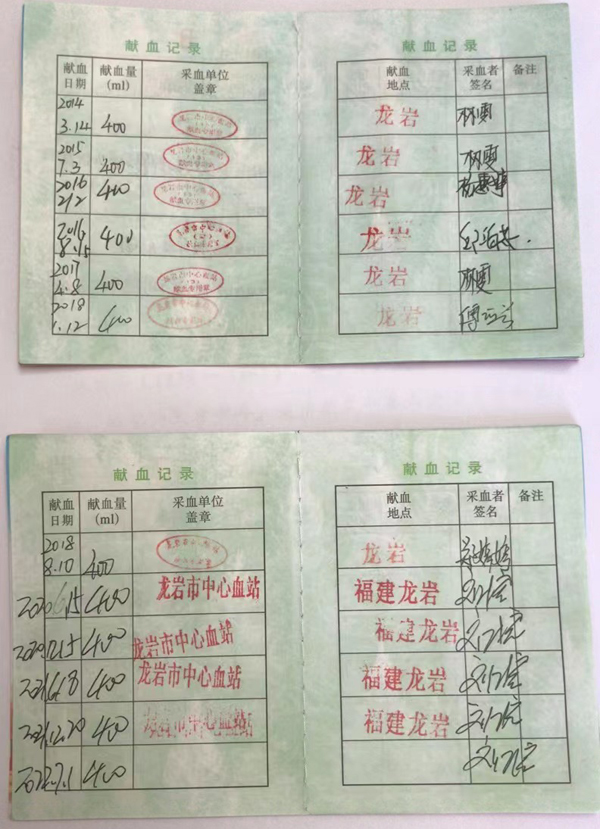 献血记录
献血日期 献血量(ml) 采血单位盖章 献血地点 采血者签名 备注
2014 3.14 400 龙岩 林雯
2015 7.3 400 龙岩 林雯
2016 2.2 400 龙岩
2016 8.15 400 龙岩
2017 4.8 400 龙岩 林雯
2018 1.12 400 龙岩
献血记录
献血日期 献血量(ml) 采血单位盖章 献血地点 采血者签名 备注
2018 8.10 400 龙岩
2020.6.15 400 龙岩市中心血站 福建龙岩
2020.12.15 400 龙岩市中心血站 福建龙岩
2021.6.18 400 龙岩市中心血站 福建龙岩
2021.12.20 400 龙岩市中心血站 福建龙岩
2022.7.1 400